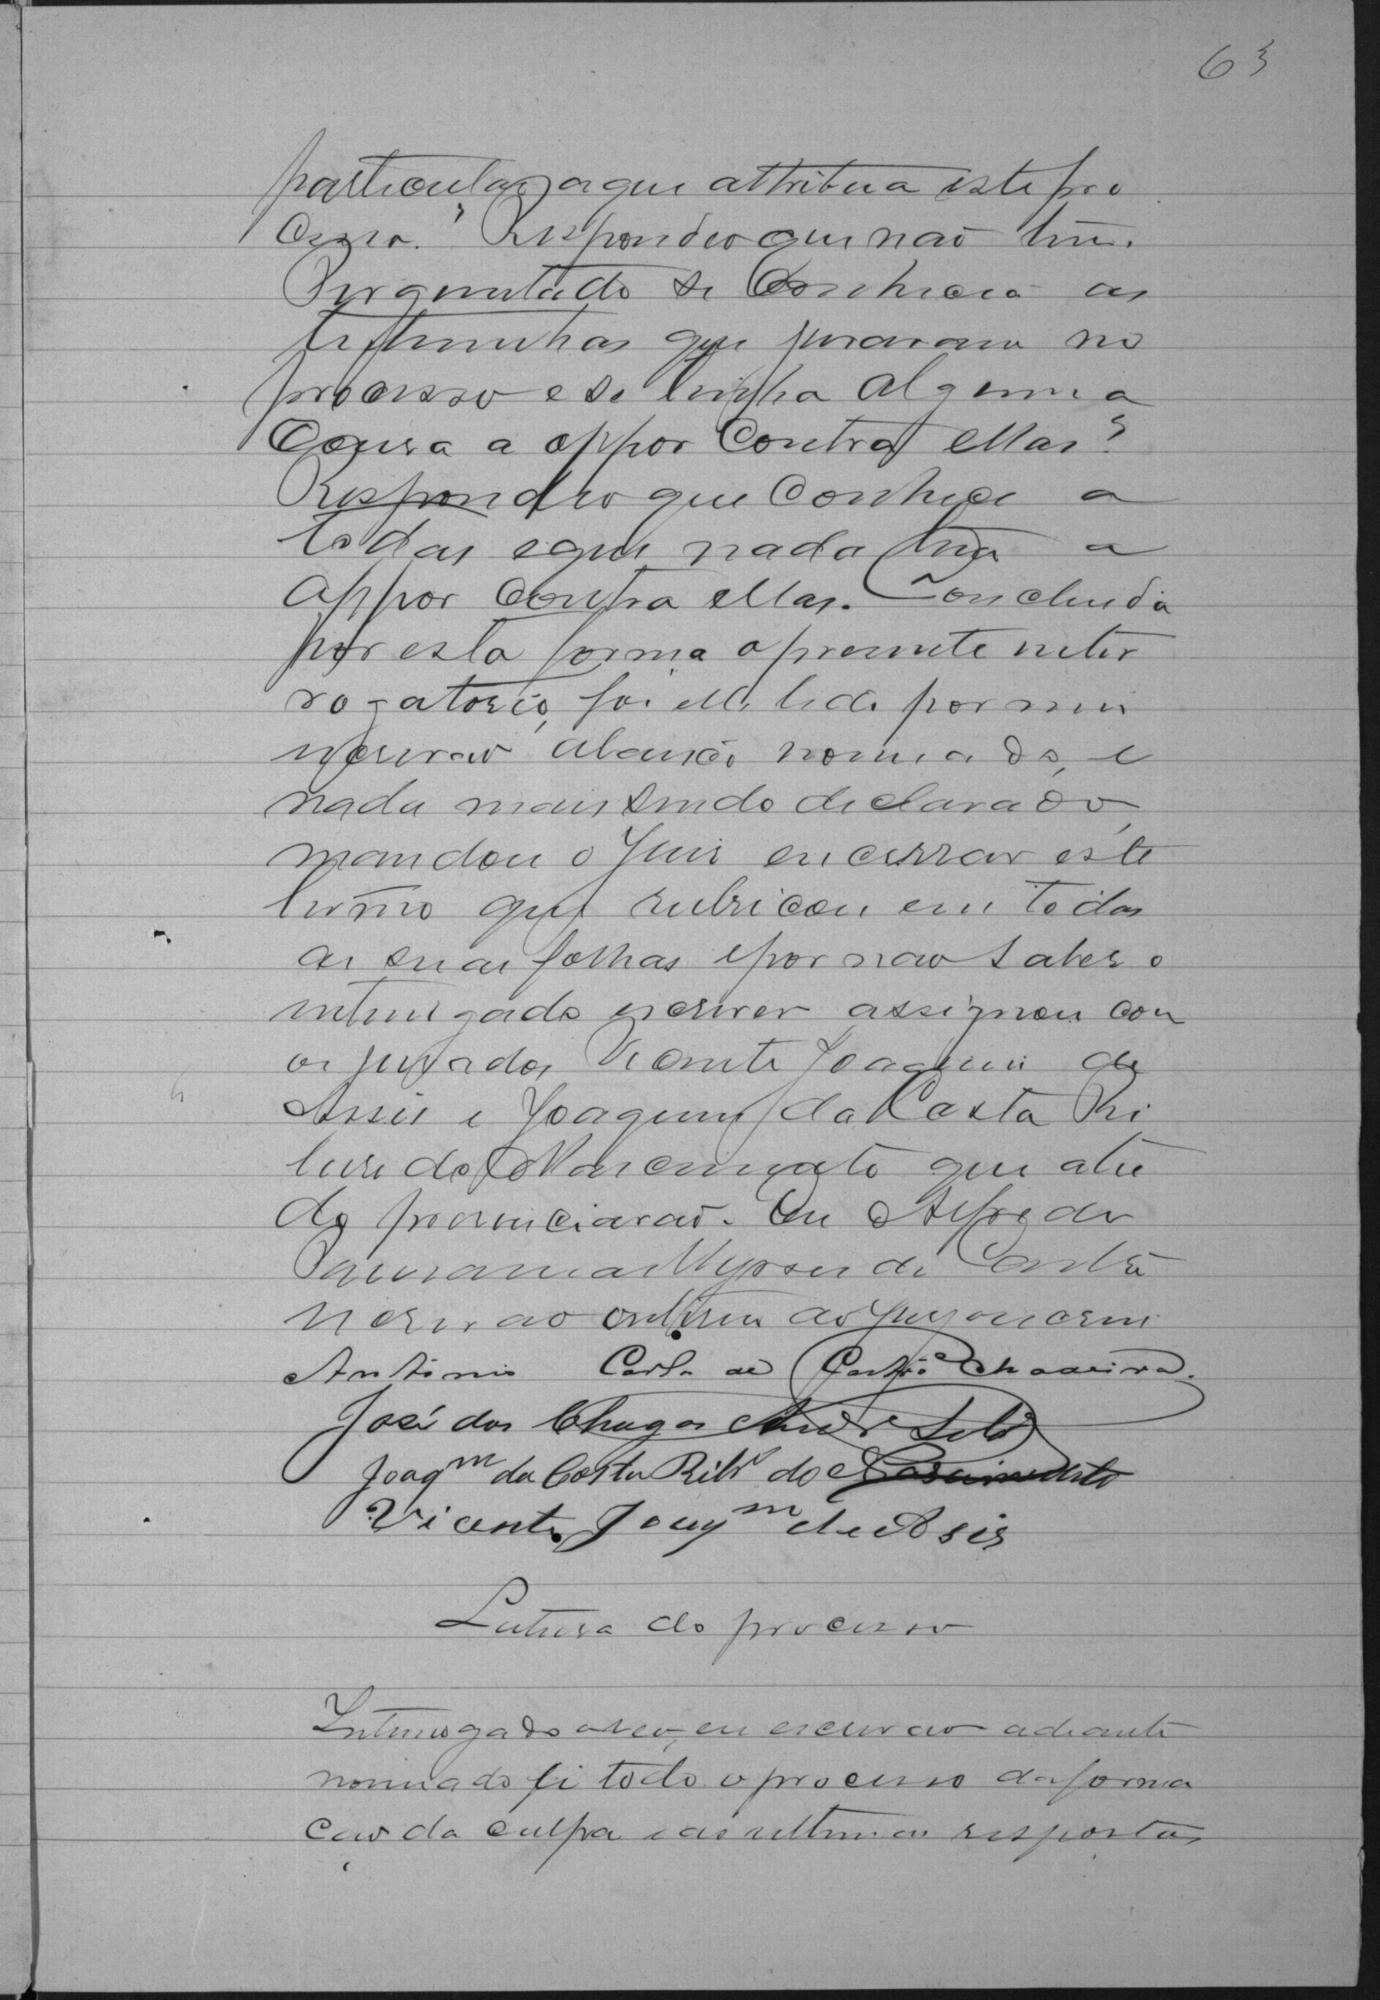 63
particular a que attribua este pro
cesso? Respondeo que não tem.
Perguntado se conhecia as
testimunhas que juraram no
processo e se tinha alguma
cousa a oppor contra ellas?
Respondeo que conhece a
todas e que nada tem a
appor contra ellas. Concluida
por esta forma o presente inter
rogatorio, foi elle lido por mim
escrivão abaixo nomeado, e
nada mais sendo declarado,
mandou o Juis encerrar este
termo que rubricou em todas
as suas folhas e por nao saber o
interrogado escrever assignou com
os jurados Vicente Joaquim de
Assis e Joaquim da Costa Ri
beiro do Nascimento que a tu
do presenciarão. Eu Alfredo
de Castro
escrivão o escrevi
Antonio Carlos de Castro Madeira.
José das Chagas
Joaqm da Costa Ribro do Nascimento
Vicente Joaqm de Asis
Leitura do processo
Interrogado o reo, eu escrivão adiante
nomeado li todo o processo da forma
ção da culpa e as ultimas respostas